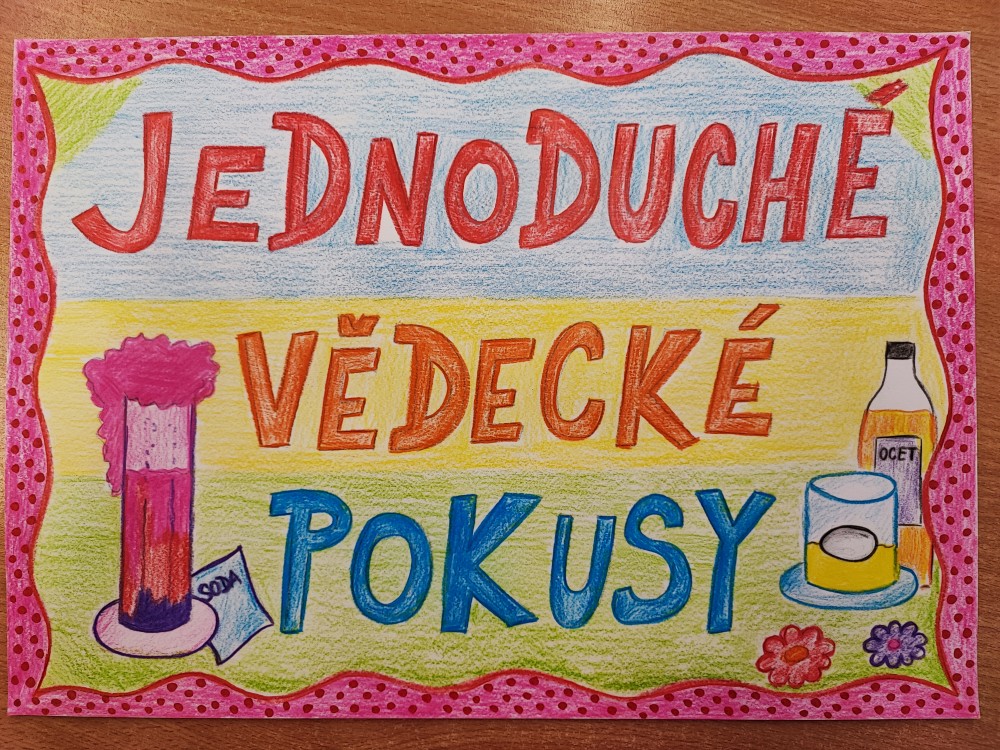 JEDNODUCHÉ
VĚDECKÉ
POKUSY
OCET
SODA